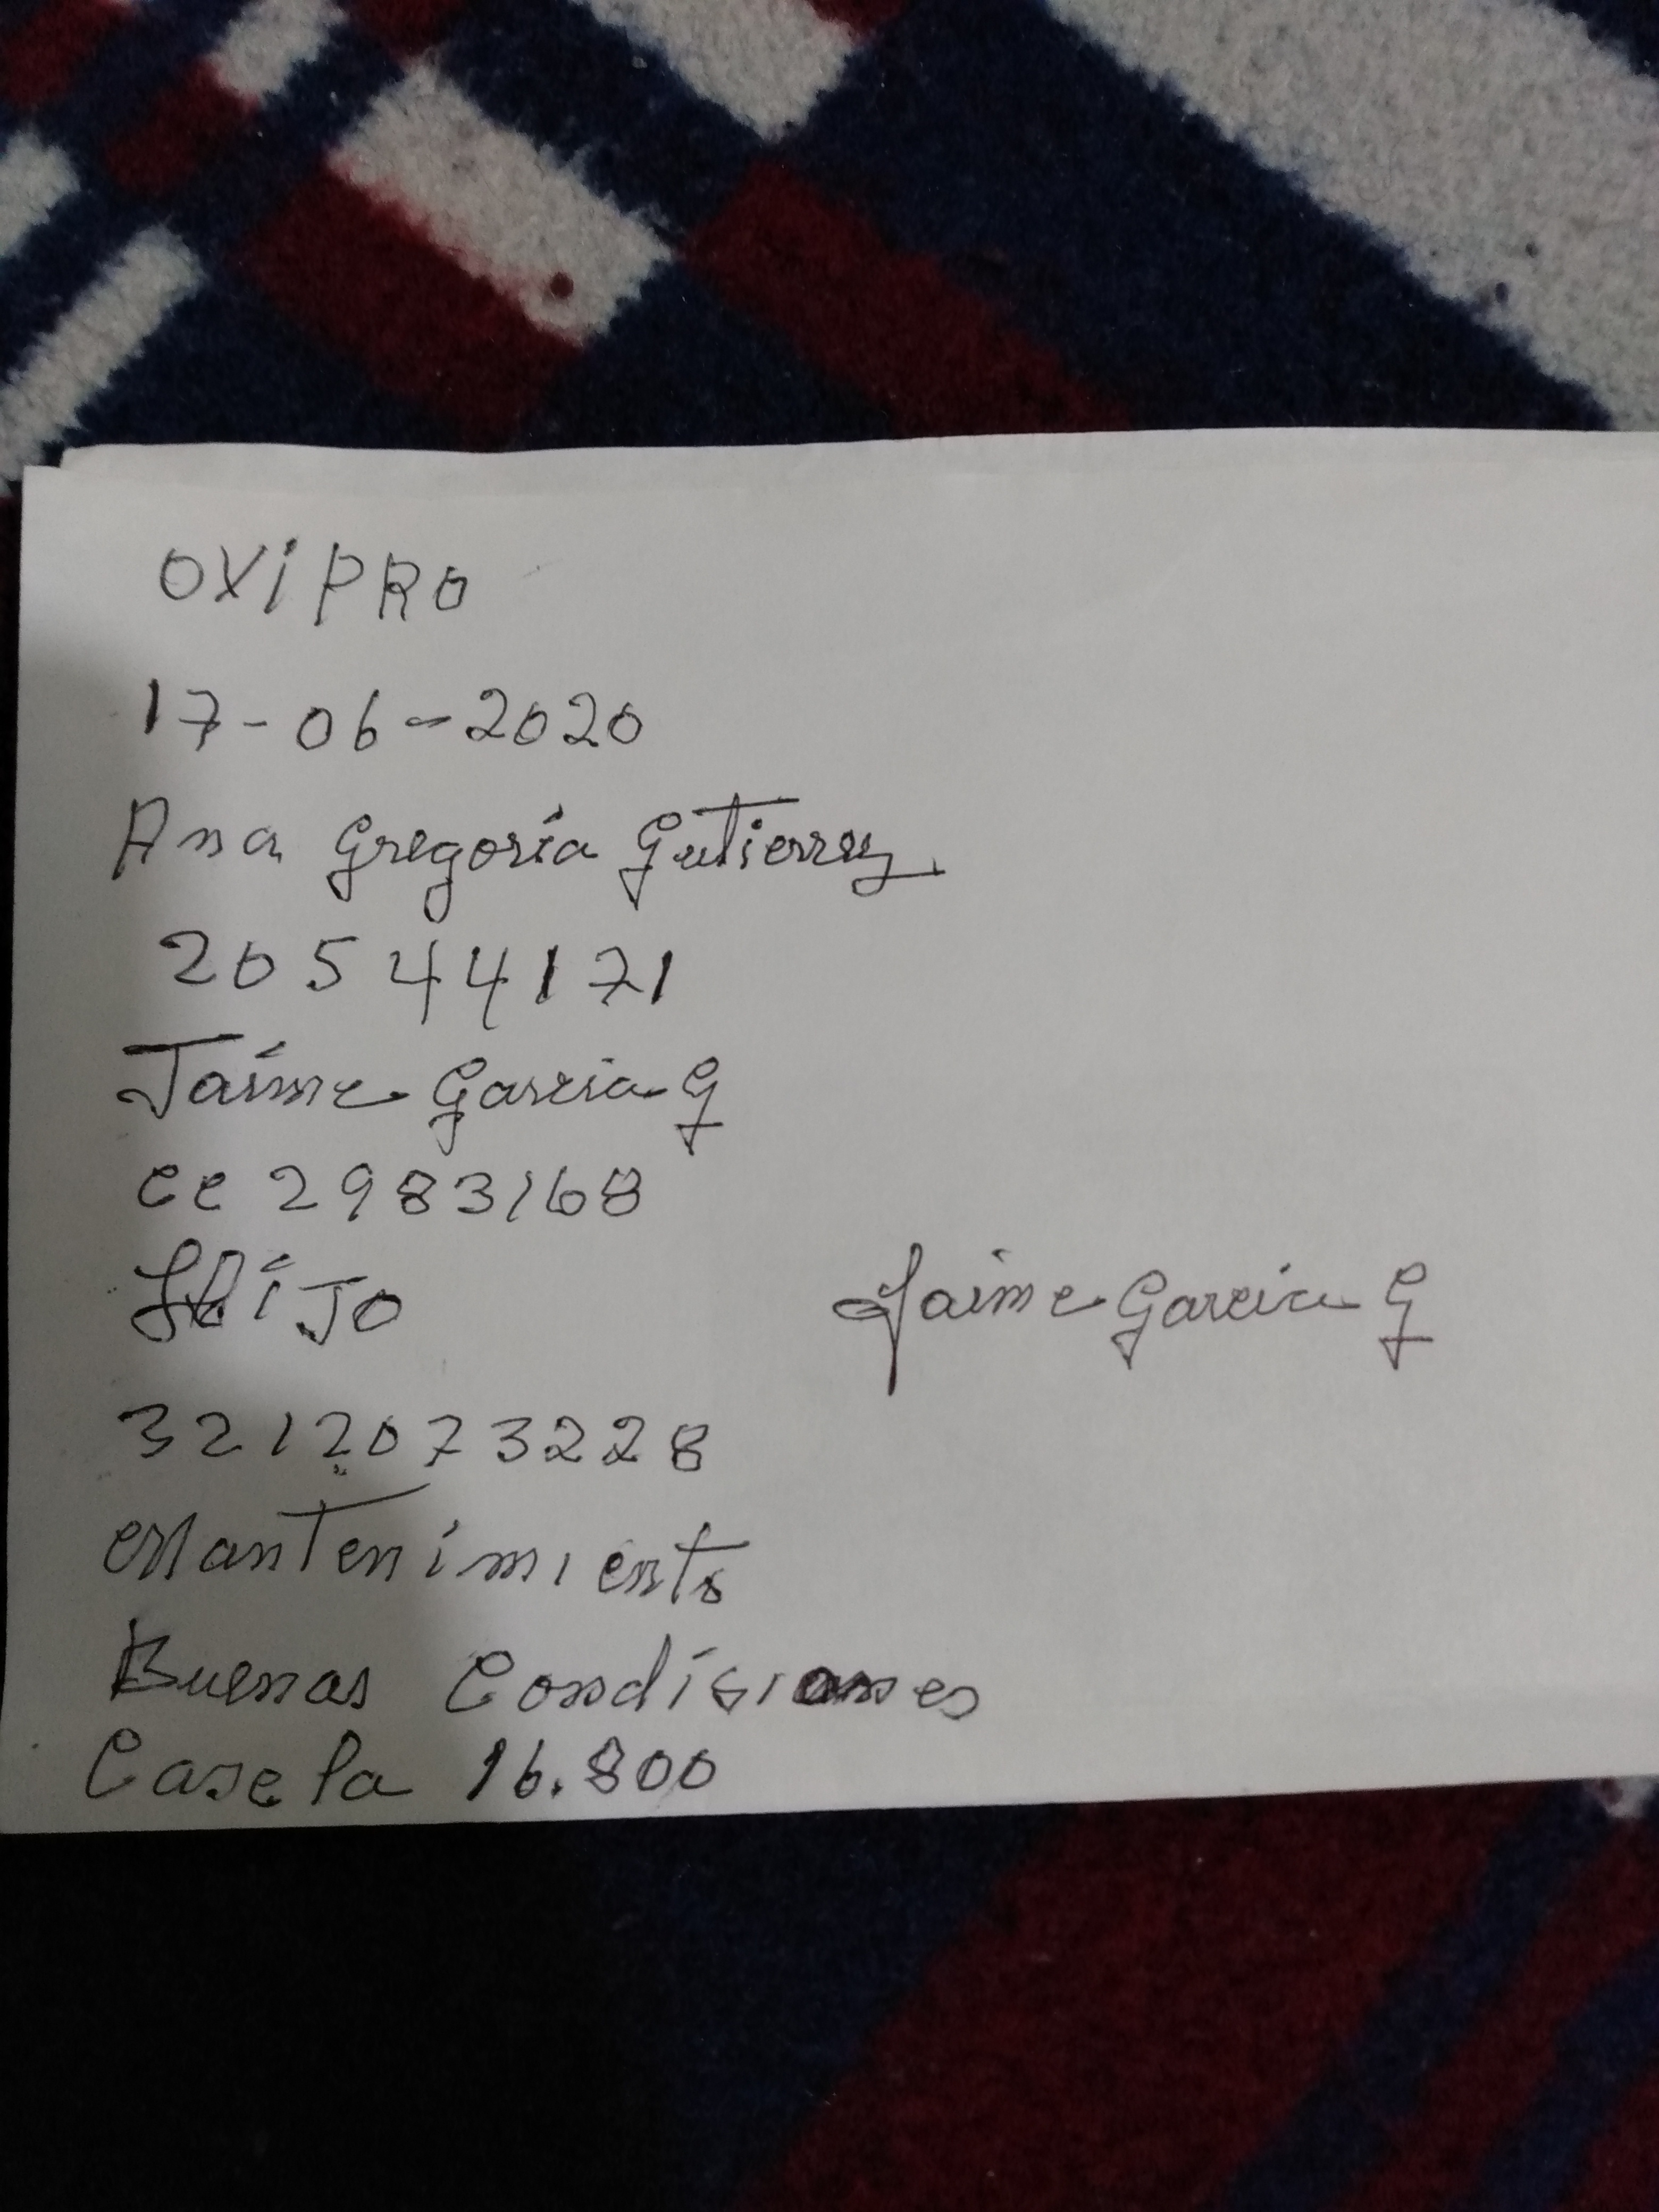 OXiPRO
17-06-2020
Ana Gregoria Gutierrez
20544171
Jaime Garcia G
cc 2983168
Hijo
Jaime Garcia G
3212073228
Mantenimiento
Buenas Condisiones
Casela 16.800